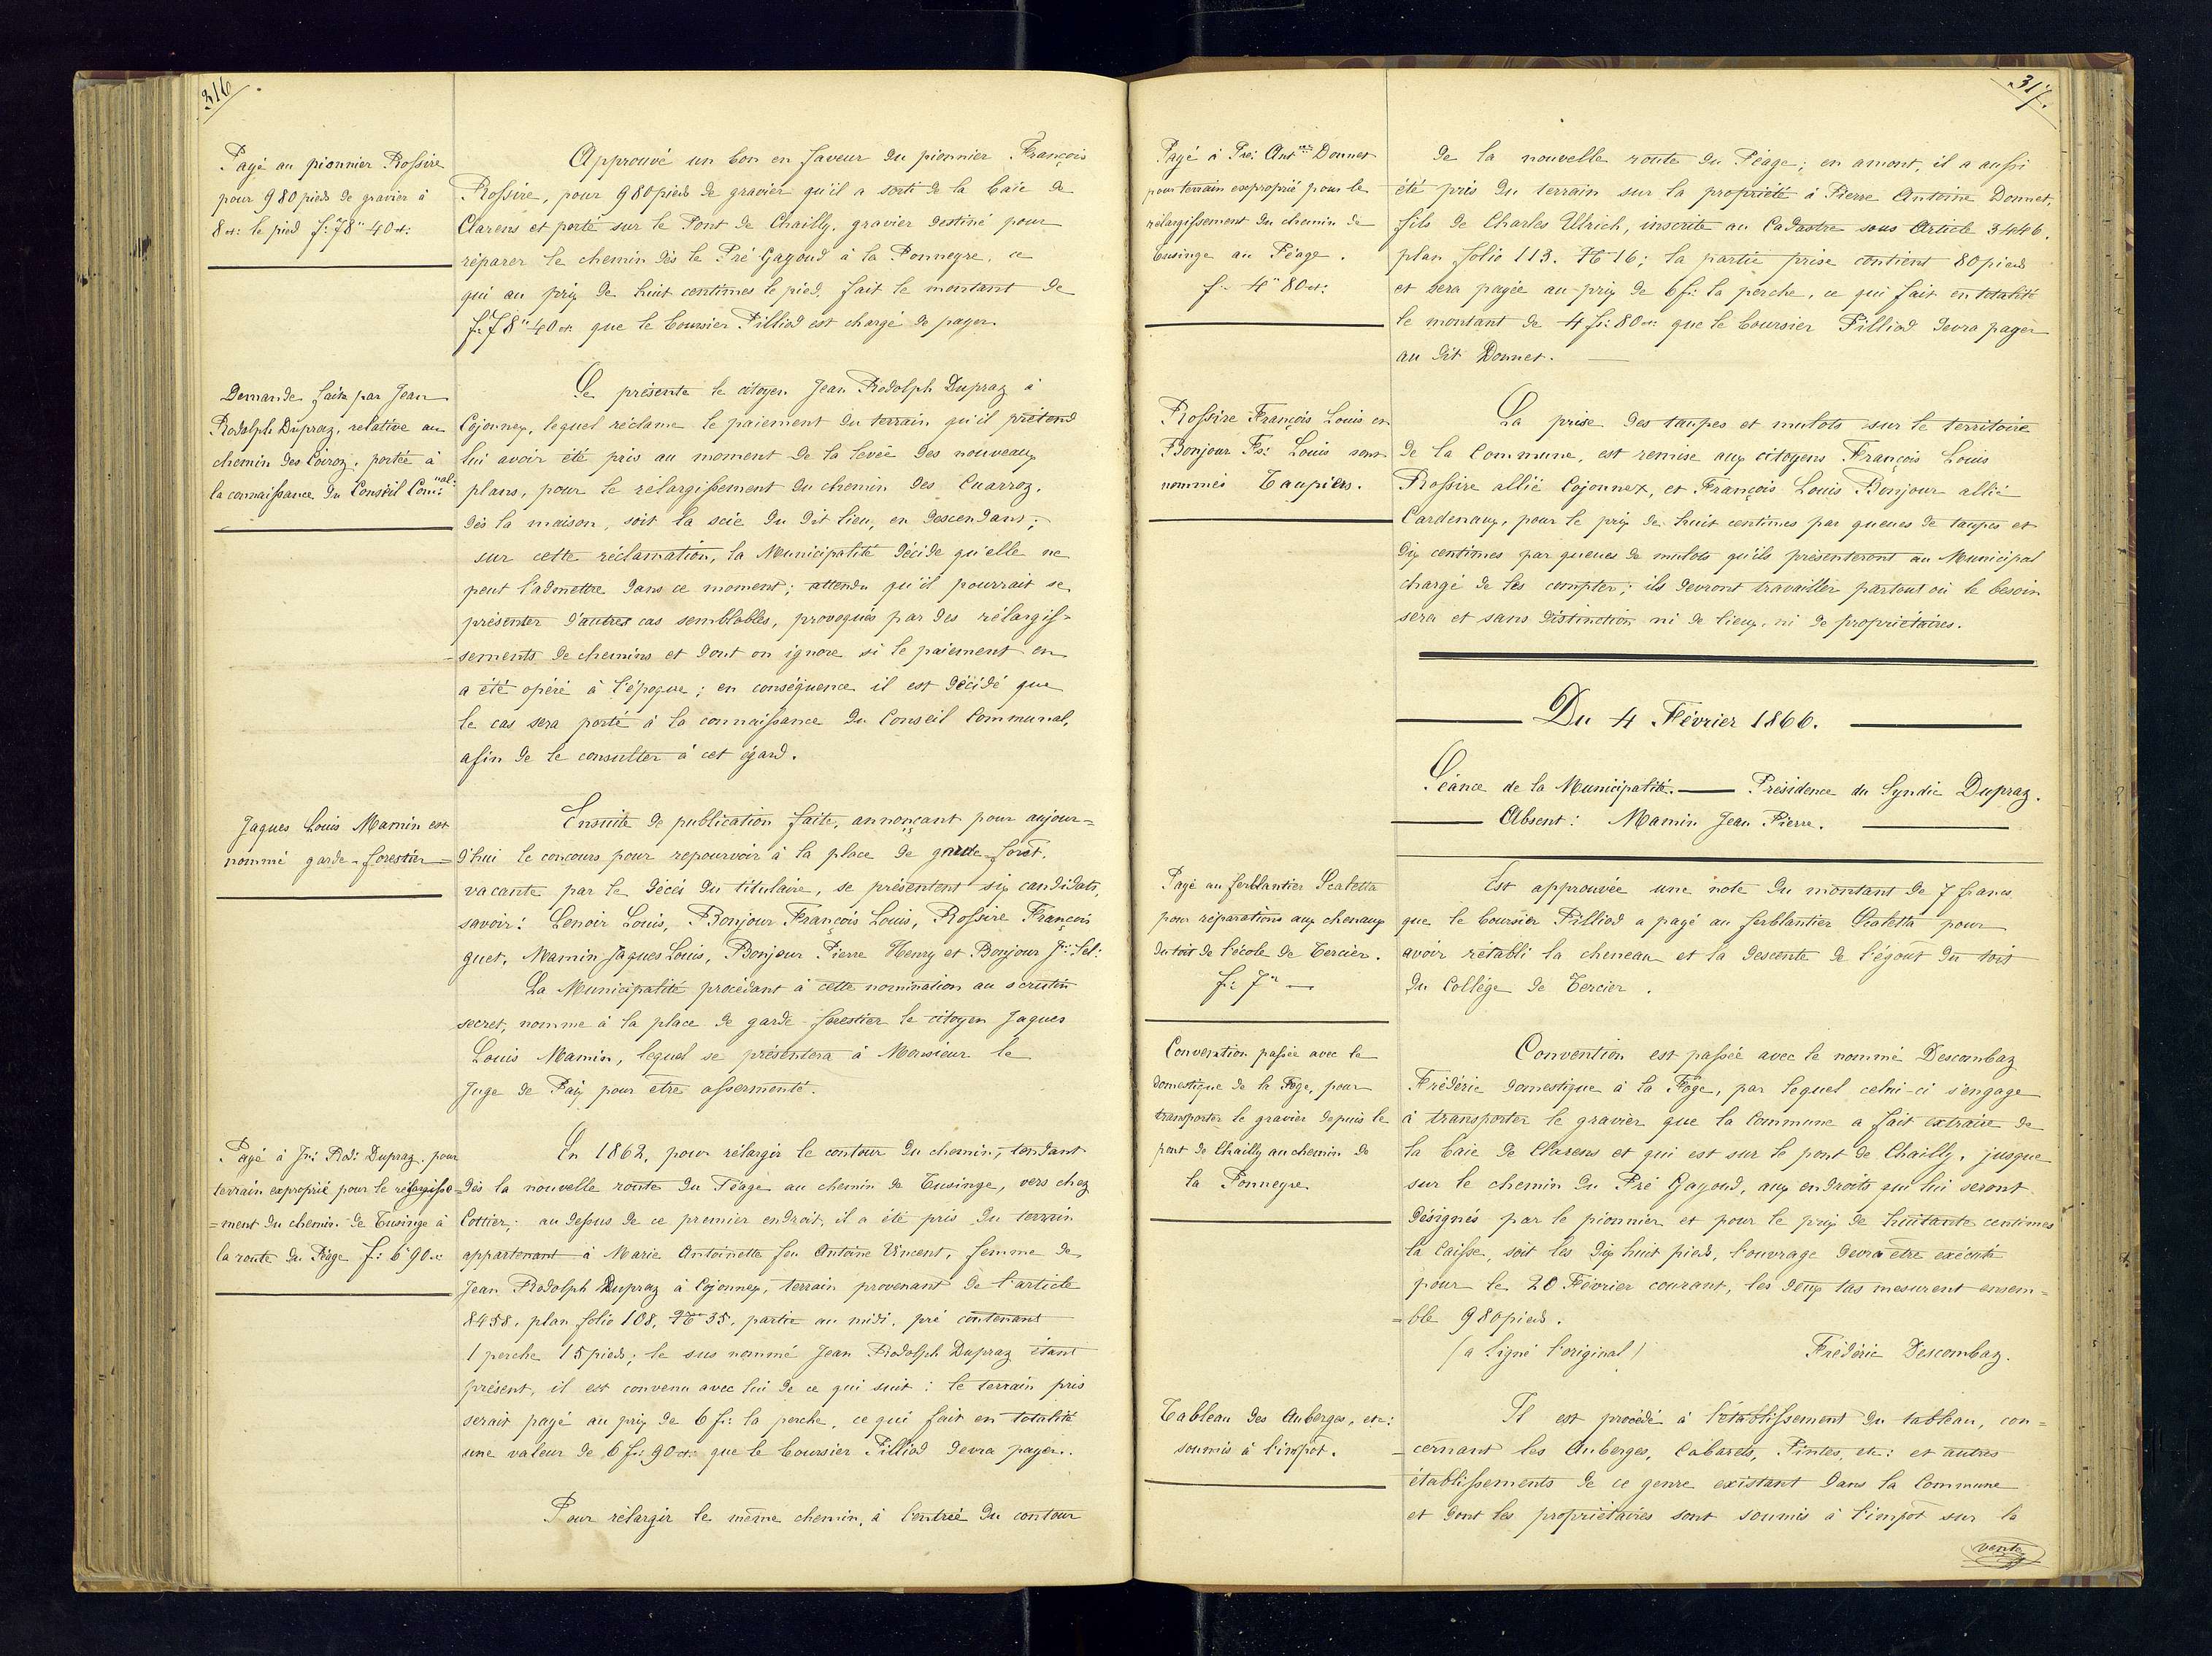 316
Payé au pionnier Rossire
pour 980 pieds de gravier à
8 ct: le pied f: 78" 40 ct:
Approuvé un bon en faveur du pionnier François
Rossire, pour 980 pieds de gravier qu'il a sorti de la baie de
Clarens et porté sur le Pont de Chailly, gravier destiné pour
réparer le chemin dès le Pré Gagoud à la Ponneyre, ce
qui au prix de huit centimes le pied, fait le montant de
f: 78" 40 ct. que le boursier Pilliod est chargé de payer.
Demande faite par Jean
Rodolph Dupraz, relative au
chemin des Coiroz, portée à
la connaissance du Conseil Com:nal.
Se présente le citoyen Jean Rodolph Dupraz à
Cojonnex, lequel réclame le paiement du terrain qu'il prétend
lui avoir été pris au moment de la levée des nouveaux
plans, pour le rélargissement du chemin des Cuarroz,
dès la maison, soit la scie du dit lieu, en descendant;
sur cette réclamation, la Municipalité décide qu'elle ne
peut l'admettre dans ce moment; attendu qu'il pourrait se
présenter d'autres cas semblables, provoqués par des rélargis=
=sements de chemins et dont on ignore si le paiement en
a été opéré à l'époque; en conséquence il est décidé que
le cas sera porté à la connaissance du Conseil Communal,
afin de le consulter à cet égard.
Jaques Louis Mamin est
nommé garde-forestier
Ensuite de publication faite, annonçant pour aujour=
=d'hui le concours pour repourvoir à la place de garde-forêt,
vacante par le décès du titulaire, se présentent six candidats,
savoir: Lenoir Louis, Bonjour François Louis, Rossire François
guet, Mamin Jaques Louis, Bonjour Pierre Henry et Bonjour
La Municipalité procédant à cette nomination au scrutin
secret, nomme à la place de garde-forestier le citoyen Jaques
Louis Mamin, lequel se présentera à Monsieur le
Juge de Paix pour être assermenté.
Payé à Jn: Rod: Dupraz, pour
terrain exproprié pour le rélargisse=
=ment du chemin de Tusinge à
la route du Péage f: 6" 90 ct
En 1862, pour rélargir le contour du chemin, tendant
dès la nouvelle route du Péage au chemin de Tusinge, vers chez
Cottier; au dessus de ce premier endroit, il a été pris du terrain
appartenant à Marie Antoinette feu Antoine Vincent, femme de
Jean Rodolph Dupraz à Cojonnex, terrain provenant de l'article
8458, plan folio 108, No 35, partie au midi, pré contenant
1 perche 15 pieds; le sus nommé Jean Rodolph Dupraz étant
présent, il est convenu avec lui de ce qui suit: le terrain pris
serait payé au prix de 6 f: la perche, ce qui fait en totalité
une valeur de 6 fr: 90 ct: que le boursier Pilliod devra payer.
Pour rélargir le même chemin, à l'entrée du contour
317.
Payé à Pre: Antne: Donnet
pour terrain exproprié pour le
rélargissement du chemin de
Tusinge au Péage.
f: 4" 80 ct:
de la nouvelle route du Péage; en amont, il a aussi
été pris du terrain sur la propriété à Pierre Antoine Donnet,
fils de Charles Ulrich, inscrite au Cadastre sous Article 3446,
plan folio 113. No 16; la partie prise contient 80 pieds
et sera payée au prix de 6 fr: la perche, ce qui fait en totalité
le montant de 4 fr: 80 ct: que le boursier Pilliod devra payer
au dit Donnet.
Rossire François Louis et
Bonjour Fs: Louis sont
nommés Taupiers.
La prise des taupes et mulots sur le territoire
de la Commune, est remise aux citoyens François Louis
Rossire allié Cojonnex, et François Louis Bonjour allié
Cardenaux, pour le prix de huit centimes par queues de taupes et
dix centimes par queues de mulots qu'ils présenteront au Municipal
chargé de les compter; ils devront travailler partout où le besoin
sera et sans distinction ni de lieux, ni de propriétaires.
Du 4 Février 1866.
Séance de la Municipalité. Présidence du Syndic Dupraz.
Absent: Mamin Jean Pierre.
Payé au ferblantier Scaletta
pour réparations aux chenaux
du toit de l'école de Tercier.
f: 7"
Est approuvée une note du montant de 7 francs
que le boursier Pilliod a payé au ferblantier Scaletta pour
avoir rétabli la cheneau et la descente de l'égout du toit
du Collège de Tercier.
Convention passée avec le
domestique de la Foge, pour
transporter le gravier depuis le
pont de Chailly au chemin de
la Ponneyre
Convention est passée avec le nommé Descombaz
Frédéric domestique à la Foge, par lequel celui-ci s'engage
à transporter le gravier que la Commune a fait extraire de
la baie de Clarens et qui est sur le pont de Chailly, jusque
sur le chemin du Pré Gagoud, aux endroits qui lui seront
désignés par le pionnier et pour le prix de huitante centimes
la caisse, soit les dix huit pieds, l'ouvrage devra être exécuté
pour le 20 Février courant, les deux tas mesurent ensem=
=ble 980 pieds.
(a Signé l'original) Frédéric Descombaz.
Tableau des Auberges, etc:
soumis à l'impôt.
Il est procédé à l'établissement du tableau, con=
=cernant les Auberges, Cabarets, Pintes, etc: et autres
établissements de ce genre existant dans la Commune
et dont les propriétaires sont soumis à l'impôt sur la
vente